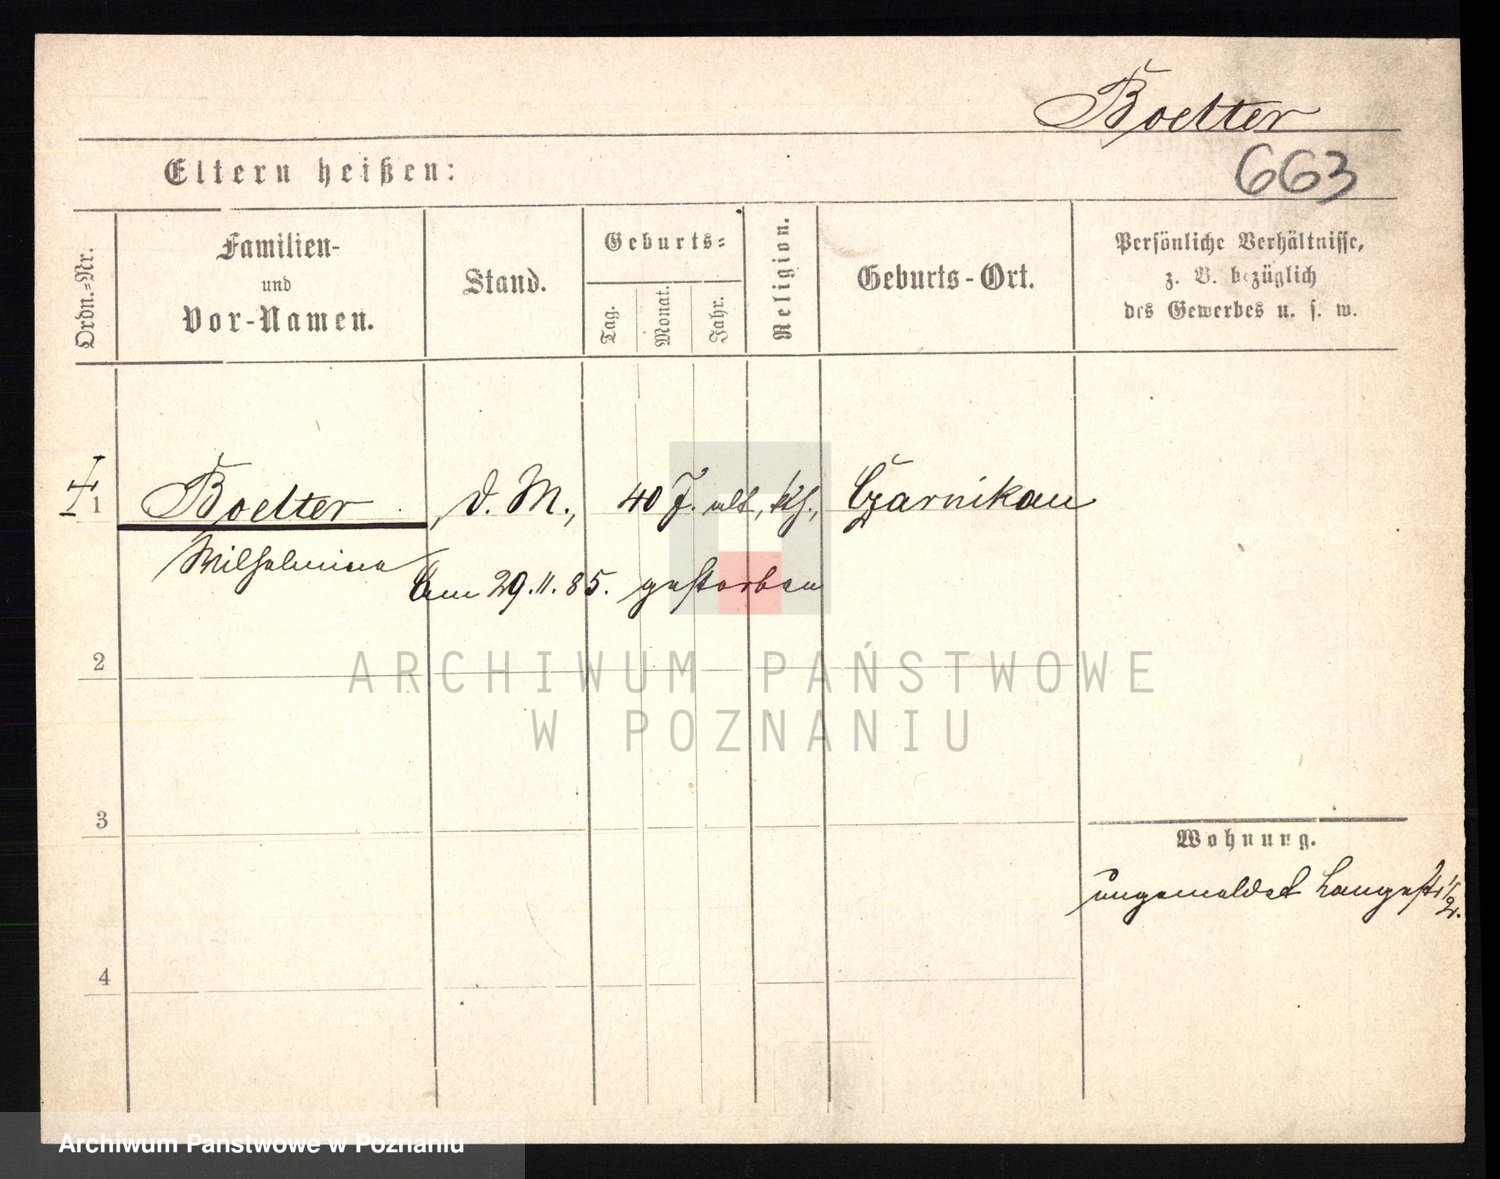 Boelter
663
Eltern heißen:
Ordn.-Nr.
Familien-
und
Vor-Namen.
Stand.
Geburts-
Tag.
Monat.
Jahr.
Religion.
Geburts-Ort.
Persönliche Verhältnisse,
z. B. bezüglich
des Gewerbes u. s. w.
1 Boelter d. M., 40 J. alt, Czarnikau
Wilhelmine am 29.11.85. gestorben
2
ARCHIWUM PAŃSTWOWE
W POZNANIU
3
Wohnung.
ungemeldet Langestr
4
Archiwum Państwowe w Poznaniu